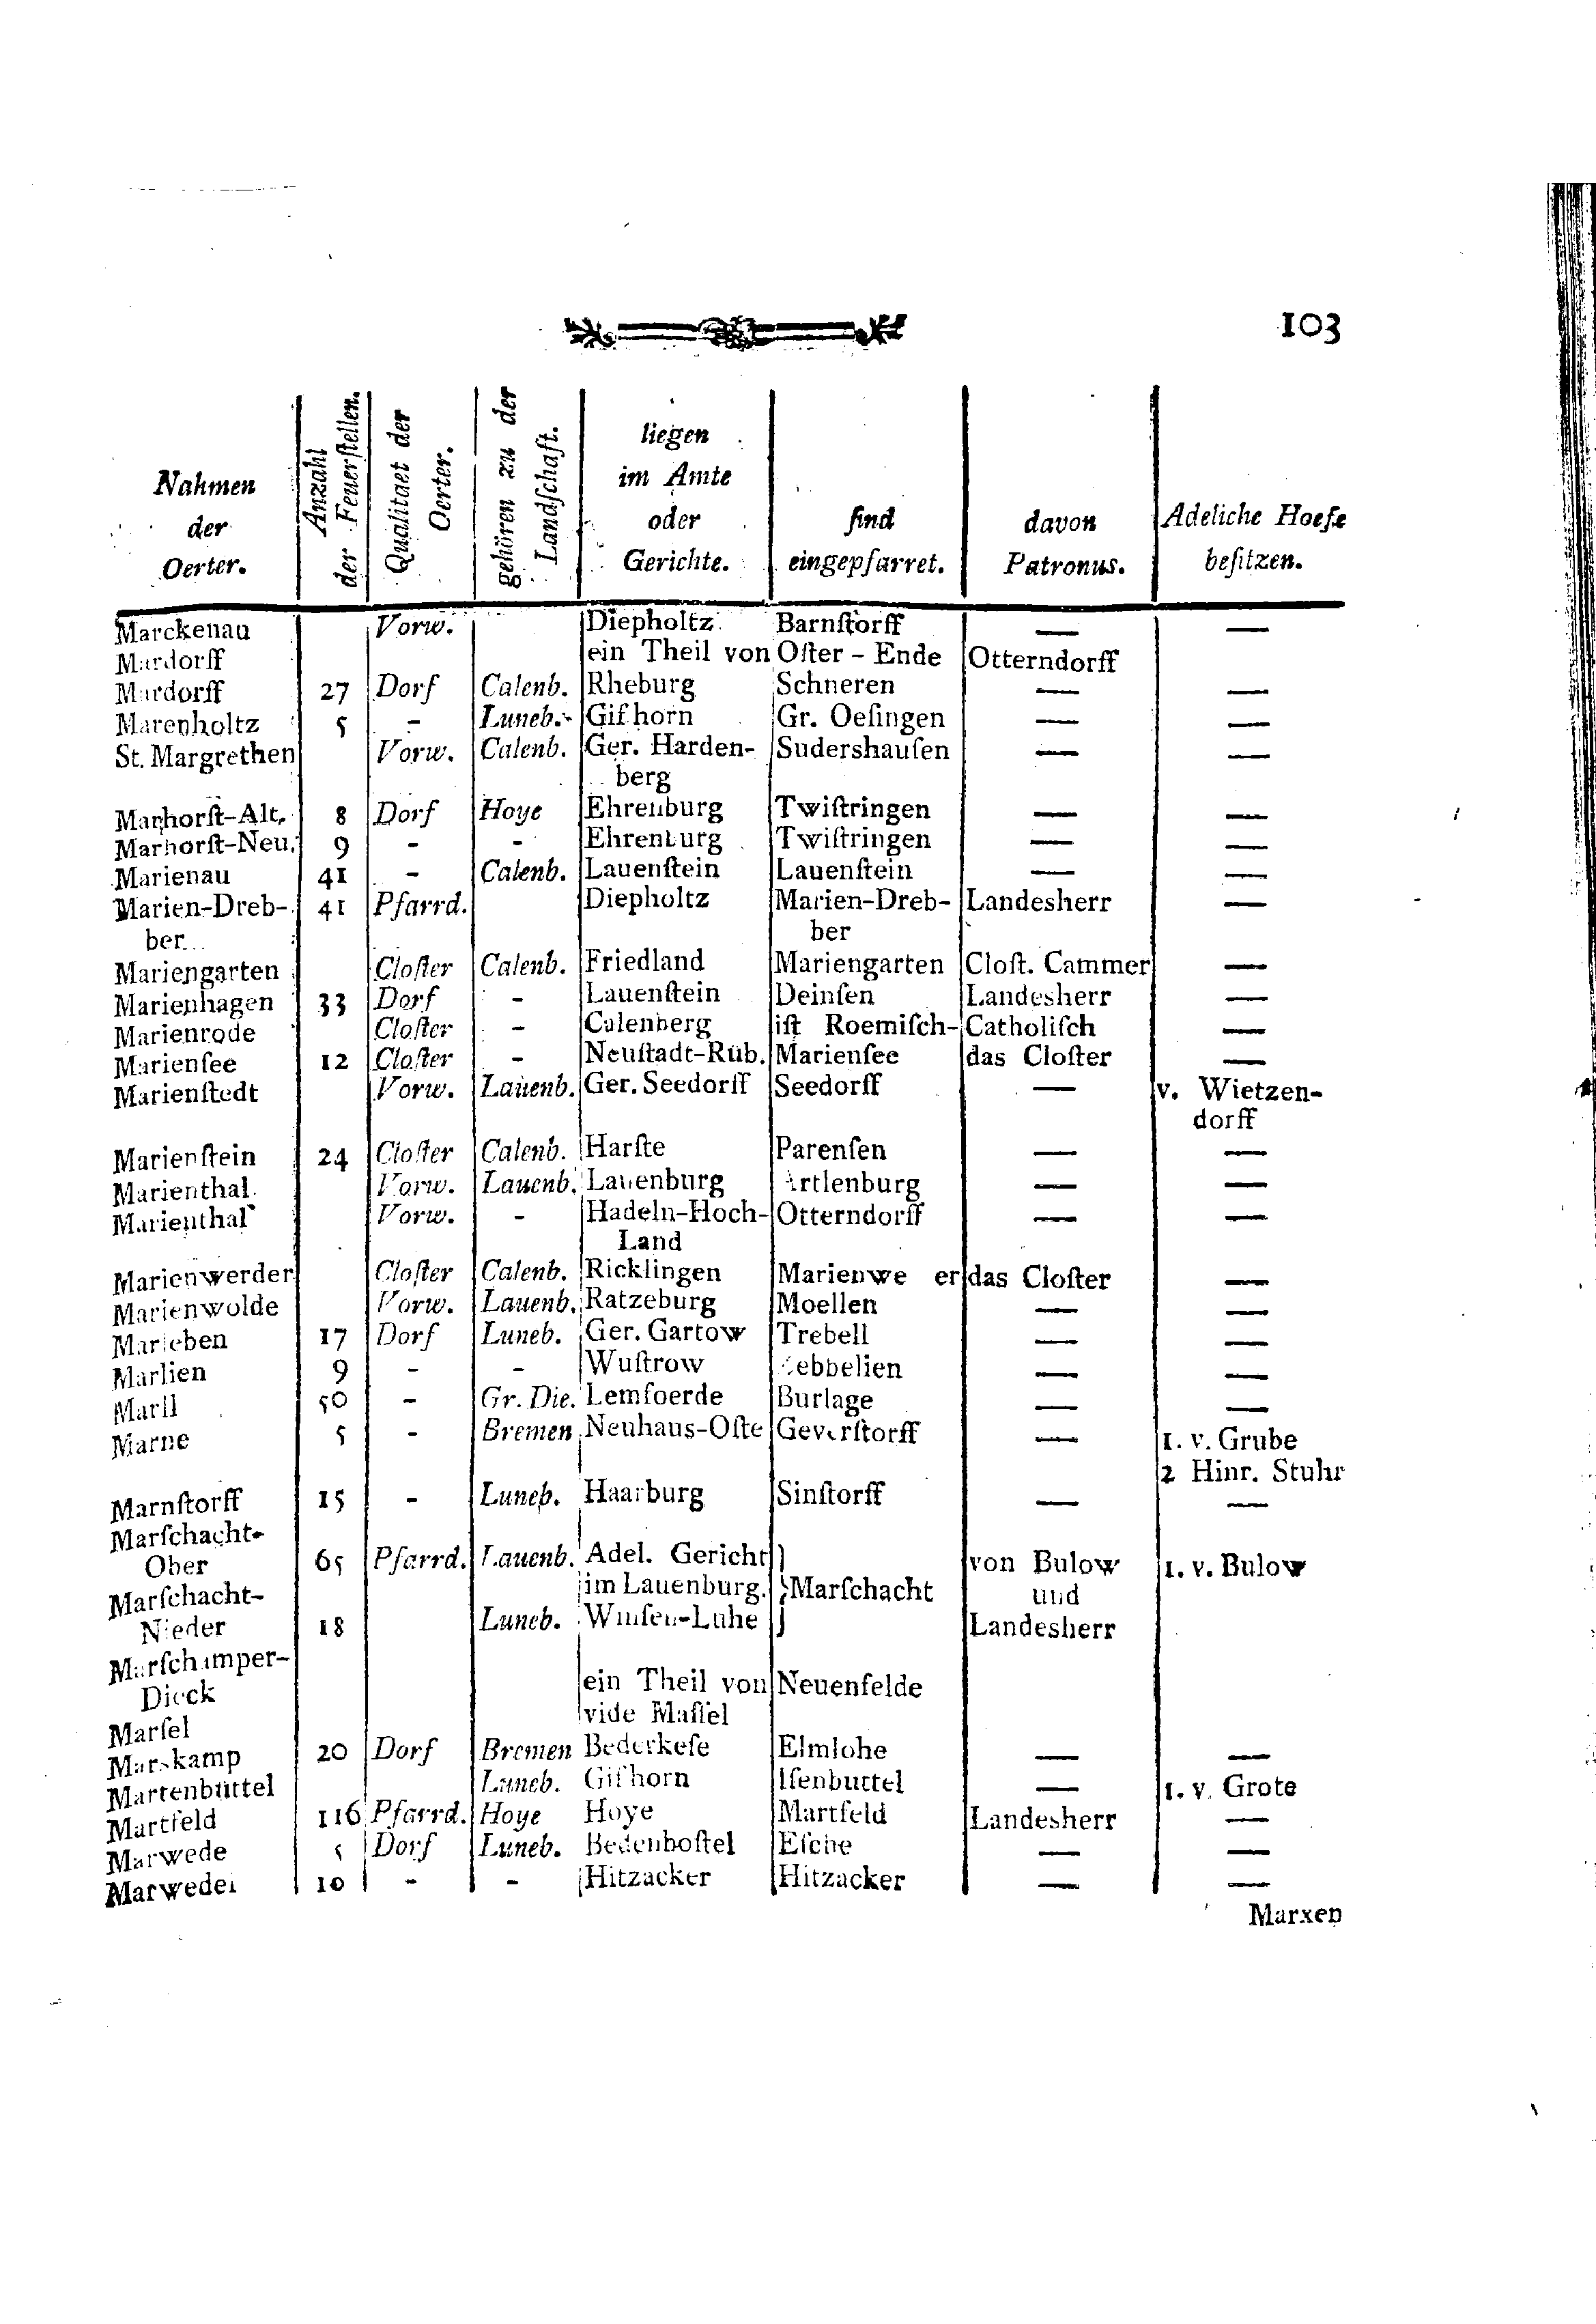 103
Nahmen der Oerter. | Anzahl der Feuerſtellen. | Qualitaet der Oerter. | gehören zu der Landſchaft. | liegen im Amte oder Gerichte. | ſind eingepfarret. | davon Patronus. | Adeliche Hoefe beſitzen.
Marckenau Vorw. Diepholtz Barnſtorff — —
Mardorff ein Theil von Oſter - Ende Otterndorff
Mardorff 27 Dorf Calenb. Rheburg Schneren — —
Marenholtz 5 - Luneb. Gifhorn Gr. Oeſingen — —
St. Margrethen Vorw. Calenb. Ger. Harden- Sudershauſen — —
berg
Marhorſt-Alt. 8 Dorf Hoye Ehrenburg Twiſtringen — —
Marhorſt-Neu. 9 - - Ehrenburg Twiſtringen — —
Marienau 41 - Calenb. Lauenſtein Lauenſtein — —
Marien-Dreb- 41 Pfarrd. Diepholtz Marien-Dreb- Landesherr —
ber ber
Mariengarten Cloſter Calenb. Friedland Mariengarten Cloſt. Cammer —
Marienhagen 33 Dorf - Lauenſtein Deinſen Landesherr —
Marienrode Cloſter - Calenberg iſt Roemiſch- Catholiſch —
Marienſee 12 Cloſter - Neuſtadt-Rüb. Marienſee das Cloſter —
Marienſtedt Vorw. Lauenb. Ger. Seedorff Seedorff — v. Wietzen-
dorff
Marienſtein 24 Cloſter Calenb. Harſte Parenſen — —
Marienthal Vorw. Lauenb. Lauenburg Artlenburg — —
Marienthal Vorw. - Hadeln-Hoch- Otterndorff — —
Land
Marienwerder Cloſter Calenb. Ricklingen Marienwe er das Cloſter —
Marienwolde Vorw. Lauenb. Ratzeburg Moellen — —
Marleben 17 Dorf Luneb. Ger. Gartow Trebell — —
Marlien 9 - - Wuſtrow ebbelien — —
Marll 50 - Gr. Die. Lemfoerde Burlage — —
Marne 5 - Bremen Neuhaus-Oſte Geverſtorff — 1. v. Grube
2 Hinr. Stuhr
Marnſtorff 15 - Luneb. Haarburg Sinſtorff — —
Marſchacht-
Ober 65 Pfarrd. Lauenb. Adel. Gericht } von Bulow 1. v. Bulow
Marſchacht- im Lauenburg. } Marſchacht und
Nieder 18 Luneb. Winſen-Luhe } Landesherr
Marſchamper-
Dieck ein Theil von Neuenfelde
Marſel vide Maſſel
Marskamp 20 Dorf Bremen Bederkeſe Elmlohe — —
Martenbüttel Luneb. Gifhorn Iſenbuttel — 1. v. Grote
Martfeld 116 Pfarrd. Hoye Hoye Martfeld Landesherr —
Marwede 5 Dorf Luneb. Bedenboſtel Eſche — —
Marwedel 10 - - Hitzacker Hitzacker — —
Marxen